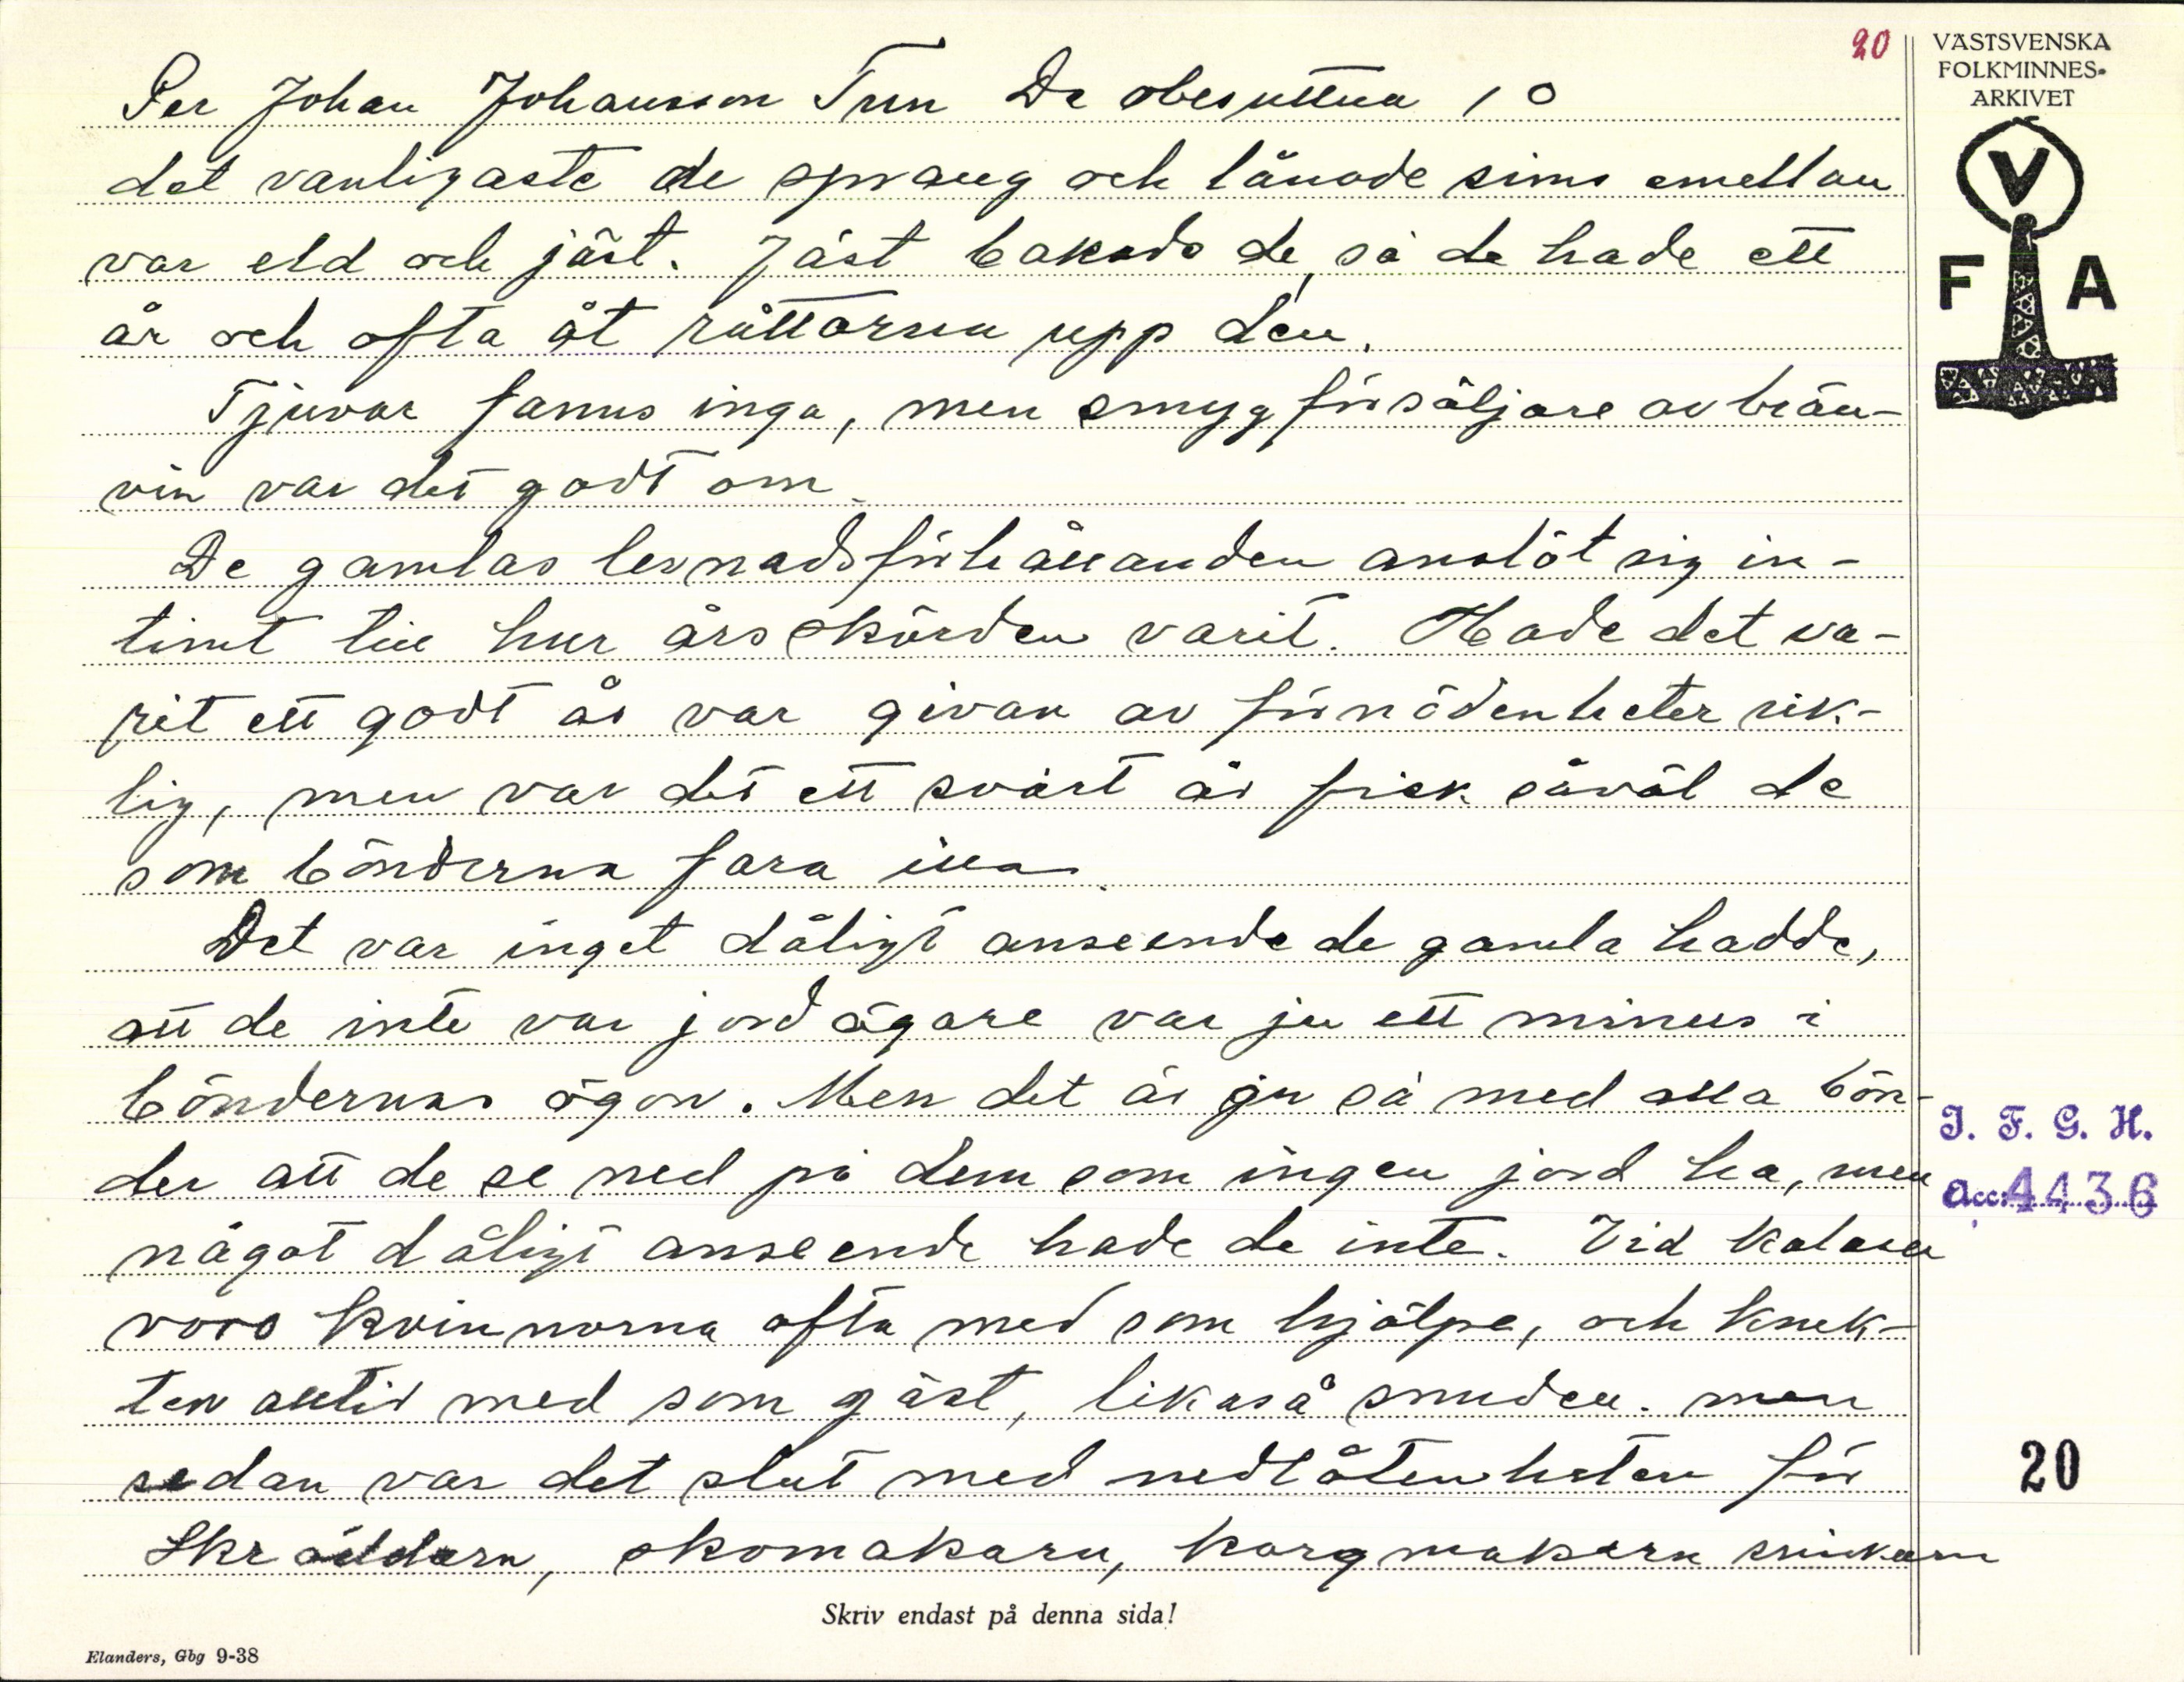 20
VÄSTSVENSKA
FOLKMINNES-
ARKIVET
V
F A
Per Johan Johansson Tun De obesuttna 10
det vanligaste de sprang och lånade sims emellan
var eld och jäst. Jäst bakade de, så de hade ett
år och ofta åt råttorna upp den.
Tjuvar fanns inga, men smygförsäljare av brän-
vin var det godt om.
De gamlas levnadsförhållanden anslöt sig in-
timt till hur årsskörden varit. Hade det va-
rit ett godt år var givan av förnödenheter rik-
lig, men var det ett svårt år fick såväl de
som bönderna fara illa.
Det var inget dåligt anseende de gamla hadde,
att de inte var jordägare var ju ett minus i
böndernas ögon. Men det är ju så med alla bön-
der att de se ned på dem som ingen jord ha, men
något dåligt anseende hade de inte. Vid kalasen
voro kvinnorna ofta med som hjälpe, och knek-
ten alltid med som gäst, likaså smeden. men
sedan var det slut med nedlåtenheten för
Skräddarn, skomakarn, korgmakarn snickarn
I. F. G. H.
Acc: 4436
20
Skriv endast på denna sida!
Elanders, Gbg 9-38